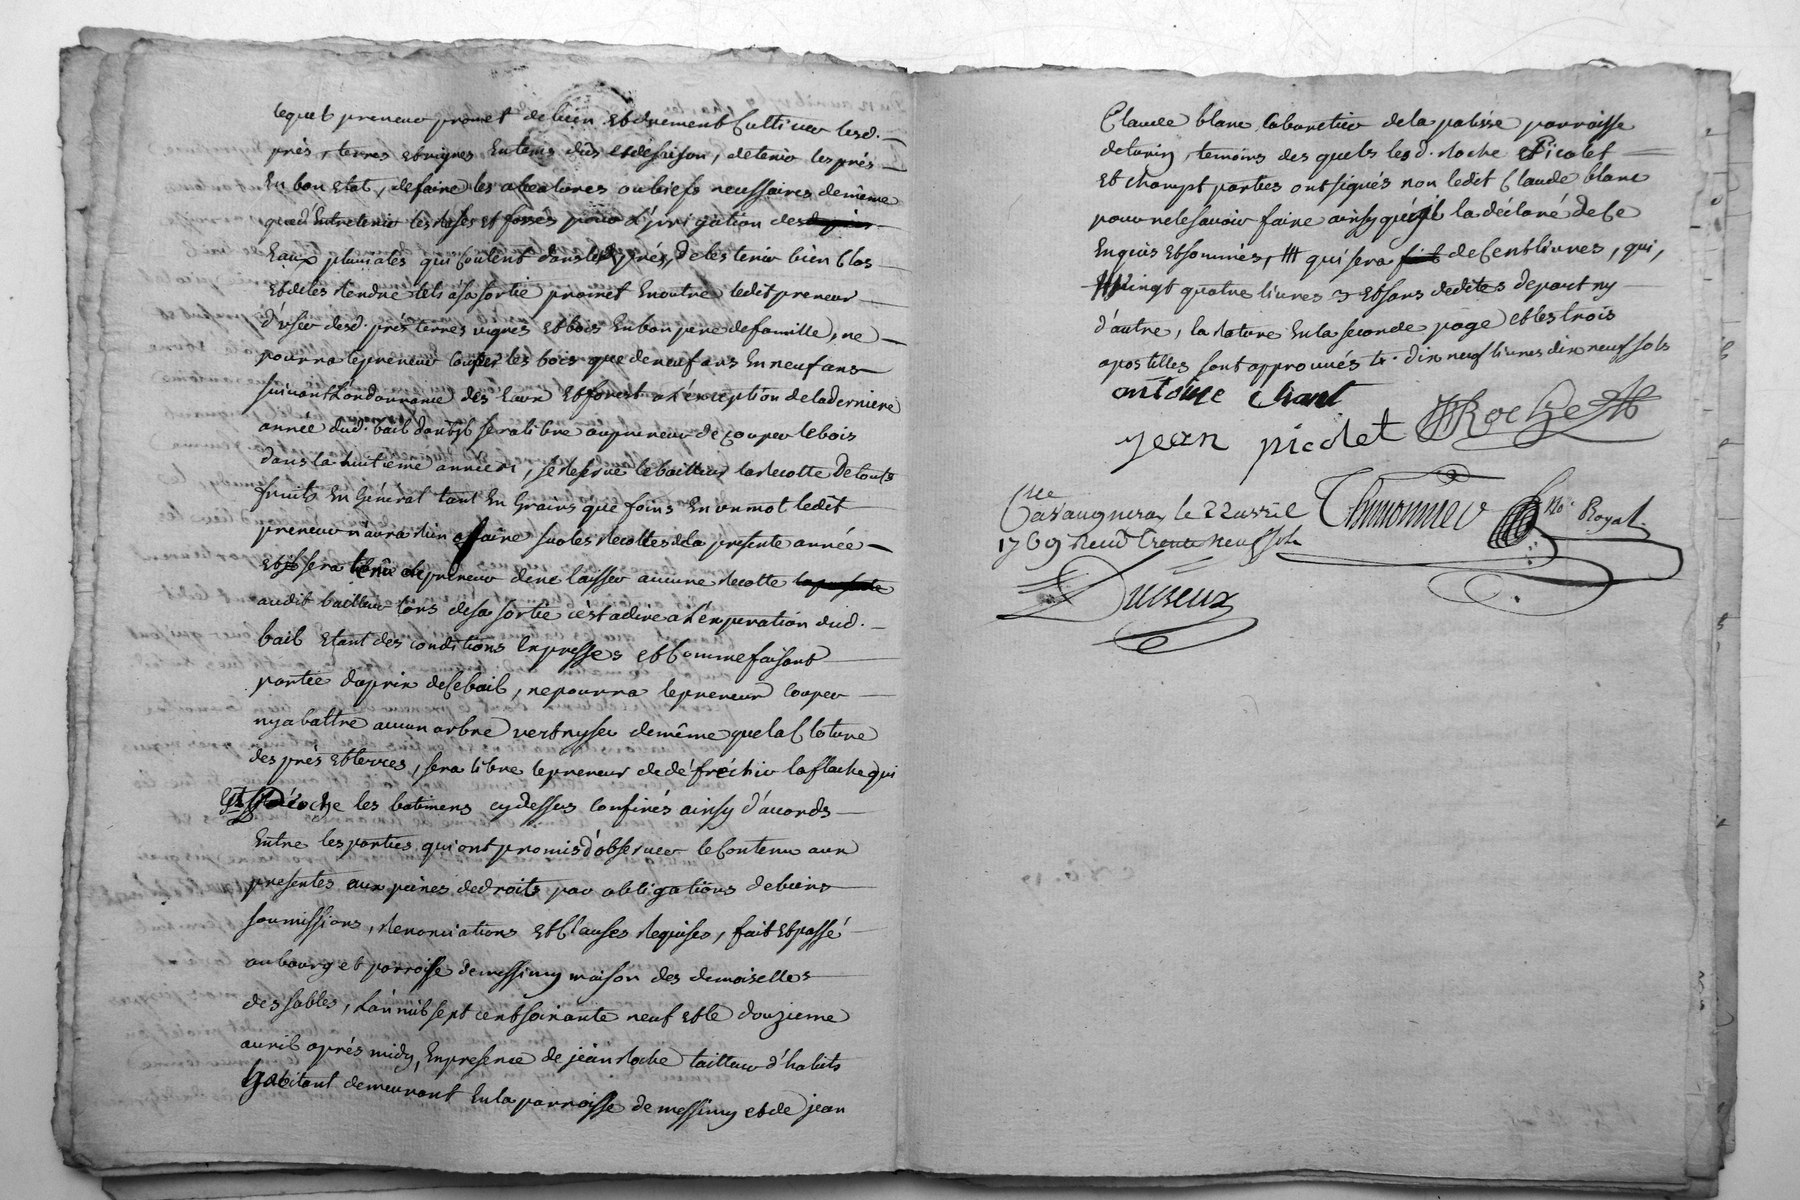 lequel preneur promet de bien et dûement cultiver lesd.
prés, terres et vignes en tems dûs et de saison, de tenir les prés
en bon état, de faire les abentures ou biefs necessaires de même
que d'Entretenir les rases et fossés pour l'irrigation des
Eaux pluviales qui coulent dans lesd. prés, de les tenir bien clos
et de les rendre tels a sa sortie promet en outre ledit preneur
d'user desd. prés terres vignes et bois en bon pere de famille, ne
pourra le preneur couper les bois que de neuf ans en neuf ans
suivant l'ordonnance des Eaux et forest a l'exception de la derniere
année dud. bail dont il sera libre au preneur de couper le bois
dans la huitieme année, se reserve le bailleur la recolte de touts
fruits en général tant en grains que foins en un mot ledit
preneur n'aura rien a faire sur les recoltes de la presente année
et il sera libre au preneur de ne laisser aucune recolte
audit bailleur lors de sa sortie c'est a dire a l'expiration dud.
bail etant des conditions expresses et comme faisant
partie du prix de ce bail, ne pourra le preneur couper
ny abattre aucun arbre vert ny sec de même que la cloture
des prés et terres, sera libre le preneur de défrichir la flache qui
est proche les batimens cy dessus confinés ainsy d'accords
Entre les parties qui ont promis d'observer le contenu aux
presentes aux peines de droits par obligations de biens
soumissions, renonciations et clauses requises, fait et passé
au bourg et parroisse de messimy maison des demoiselles
des sables, l'an mil sept cent soixante neuf et le douzieme
avril aprés midy, En presence de jean roche tailleur d'habits
habitant demeurant En la parroisse de messimy et de jean
Claude blanc cabaretier de la palisse parroisse
de turin, temoins des quels lesd. roche Picolet
et champt parties ont signés non ledit Claude blanc
pour ne le savoir faire ainsy qu'il la déclaré de ce
Enquis et sommés, qui sera de Cent livres, qui,
vingt quatre livres 3 et sans dedites de part ny
d'autre, la rature En la seconde page et les trois
apostilles sont approuvés dix neuf livres dix neuf sols
antoine chant
jean picolet Roche
C.lle a vaugneray le 22 avril Thimonnier No. Royal.
1769 Reçu trente neuf sols